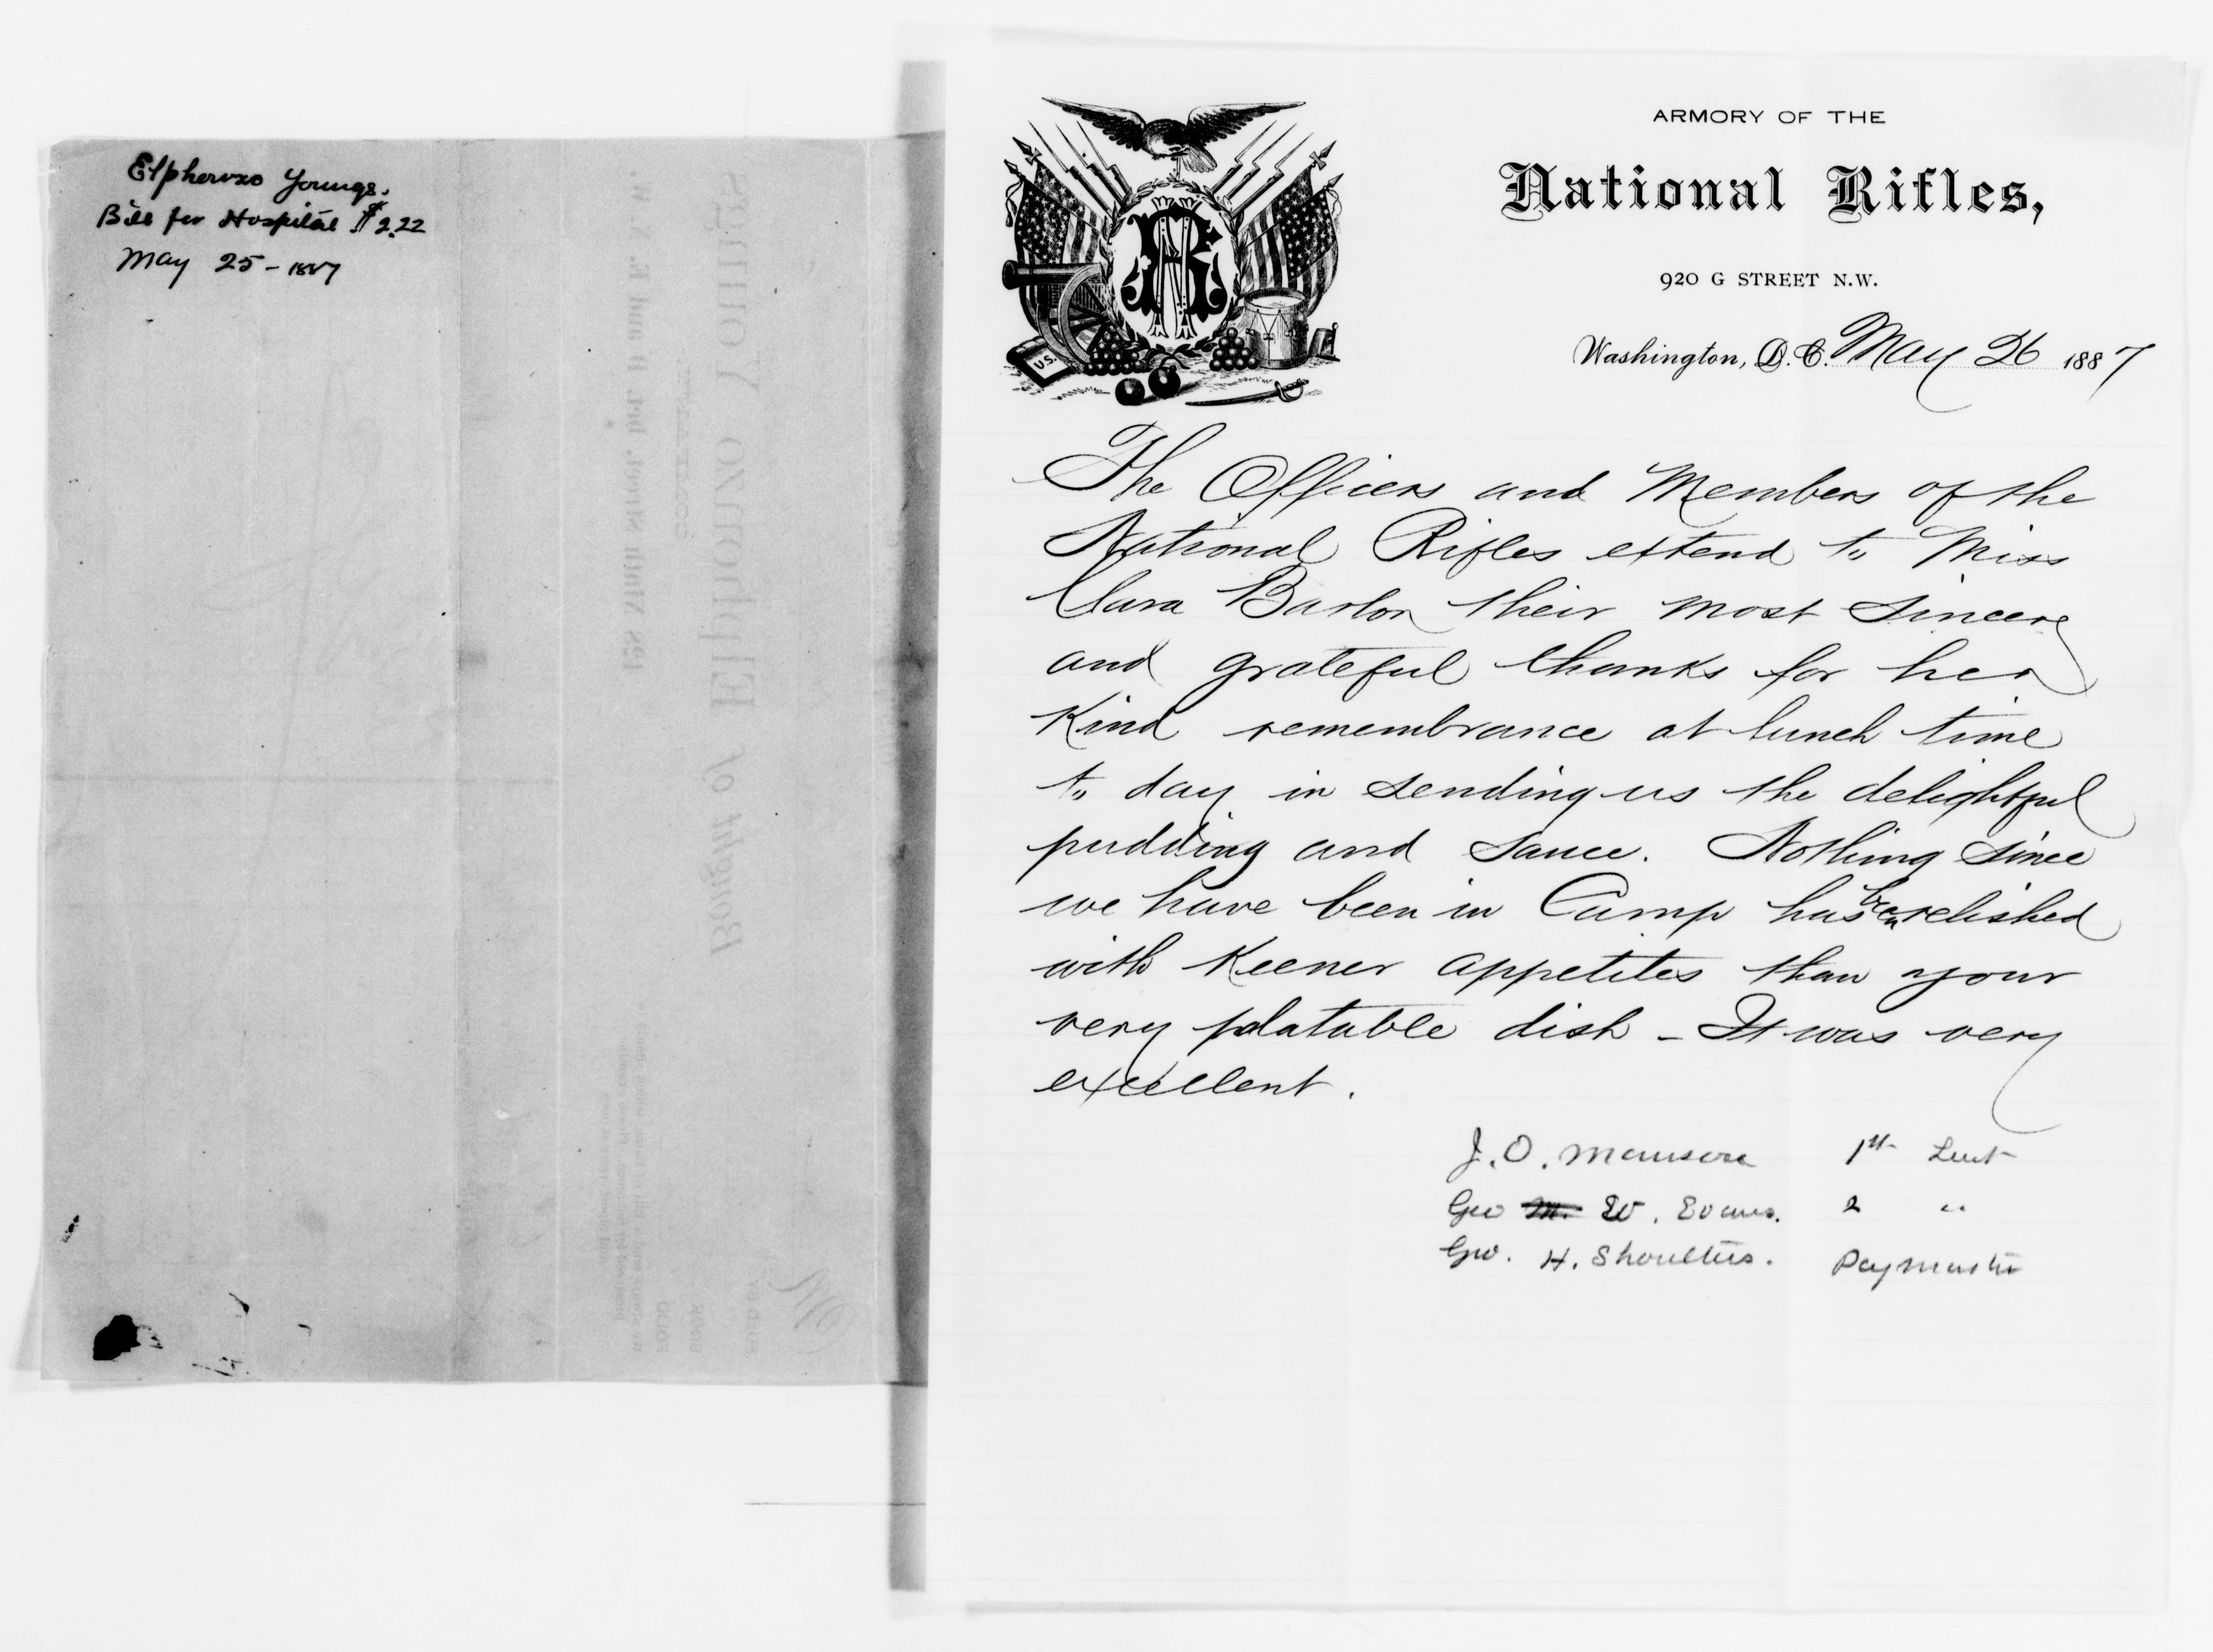 Elphonzo Youngs.
Bill for Hospital $2.22
May 25 - 1887
Bought of Elphonzo Youngs
428 Ninth Street, bet. D and E. N.W.
U.S.
NR
ARMORY OF THE
National Rifles,
920 G STREET N.W.
Washington, D.C. May 26 1887
The Officers and Members of the
National Rifles extend to Miss
Clara Barton their most sincere
and grateful thanks for her
kind remembrance at lunch time
to day in sending us the delightful
pudding and sauce. Nothing since
we have been in Camp has been relished
with keener appetites than your
very platable dish - It was very
excellent.
J. O. Manson 1st Lieut
Geo M. W. Evans. 2 "
Geo. H. Shoulters. Paymaster